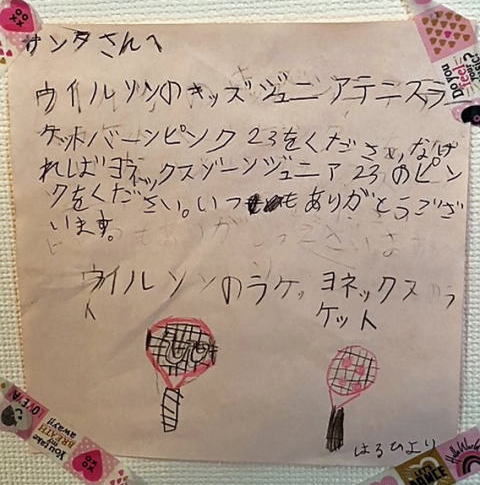 サンタさんへ
ウイルソンのキッズジュニアテニスラ
ケットバーンピンク23をください。なけ
ればヨネックスゾーンジュニア23のピン
クをください。いつもありがとうござ
います。
ウイルソンのラケッ
ト
ヨネックスのラ
ケット
はるひより
Do you
feel
LOVE YA!
You take
my
BREATH
away!!
DANCE